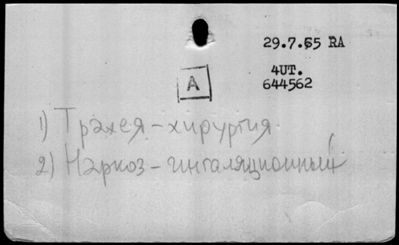 29.7.65 RA
4UT.
A
644562
1) Трахея - хирургия
2) Наркоз - ингаляционный